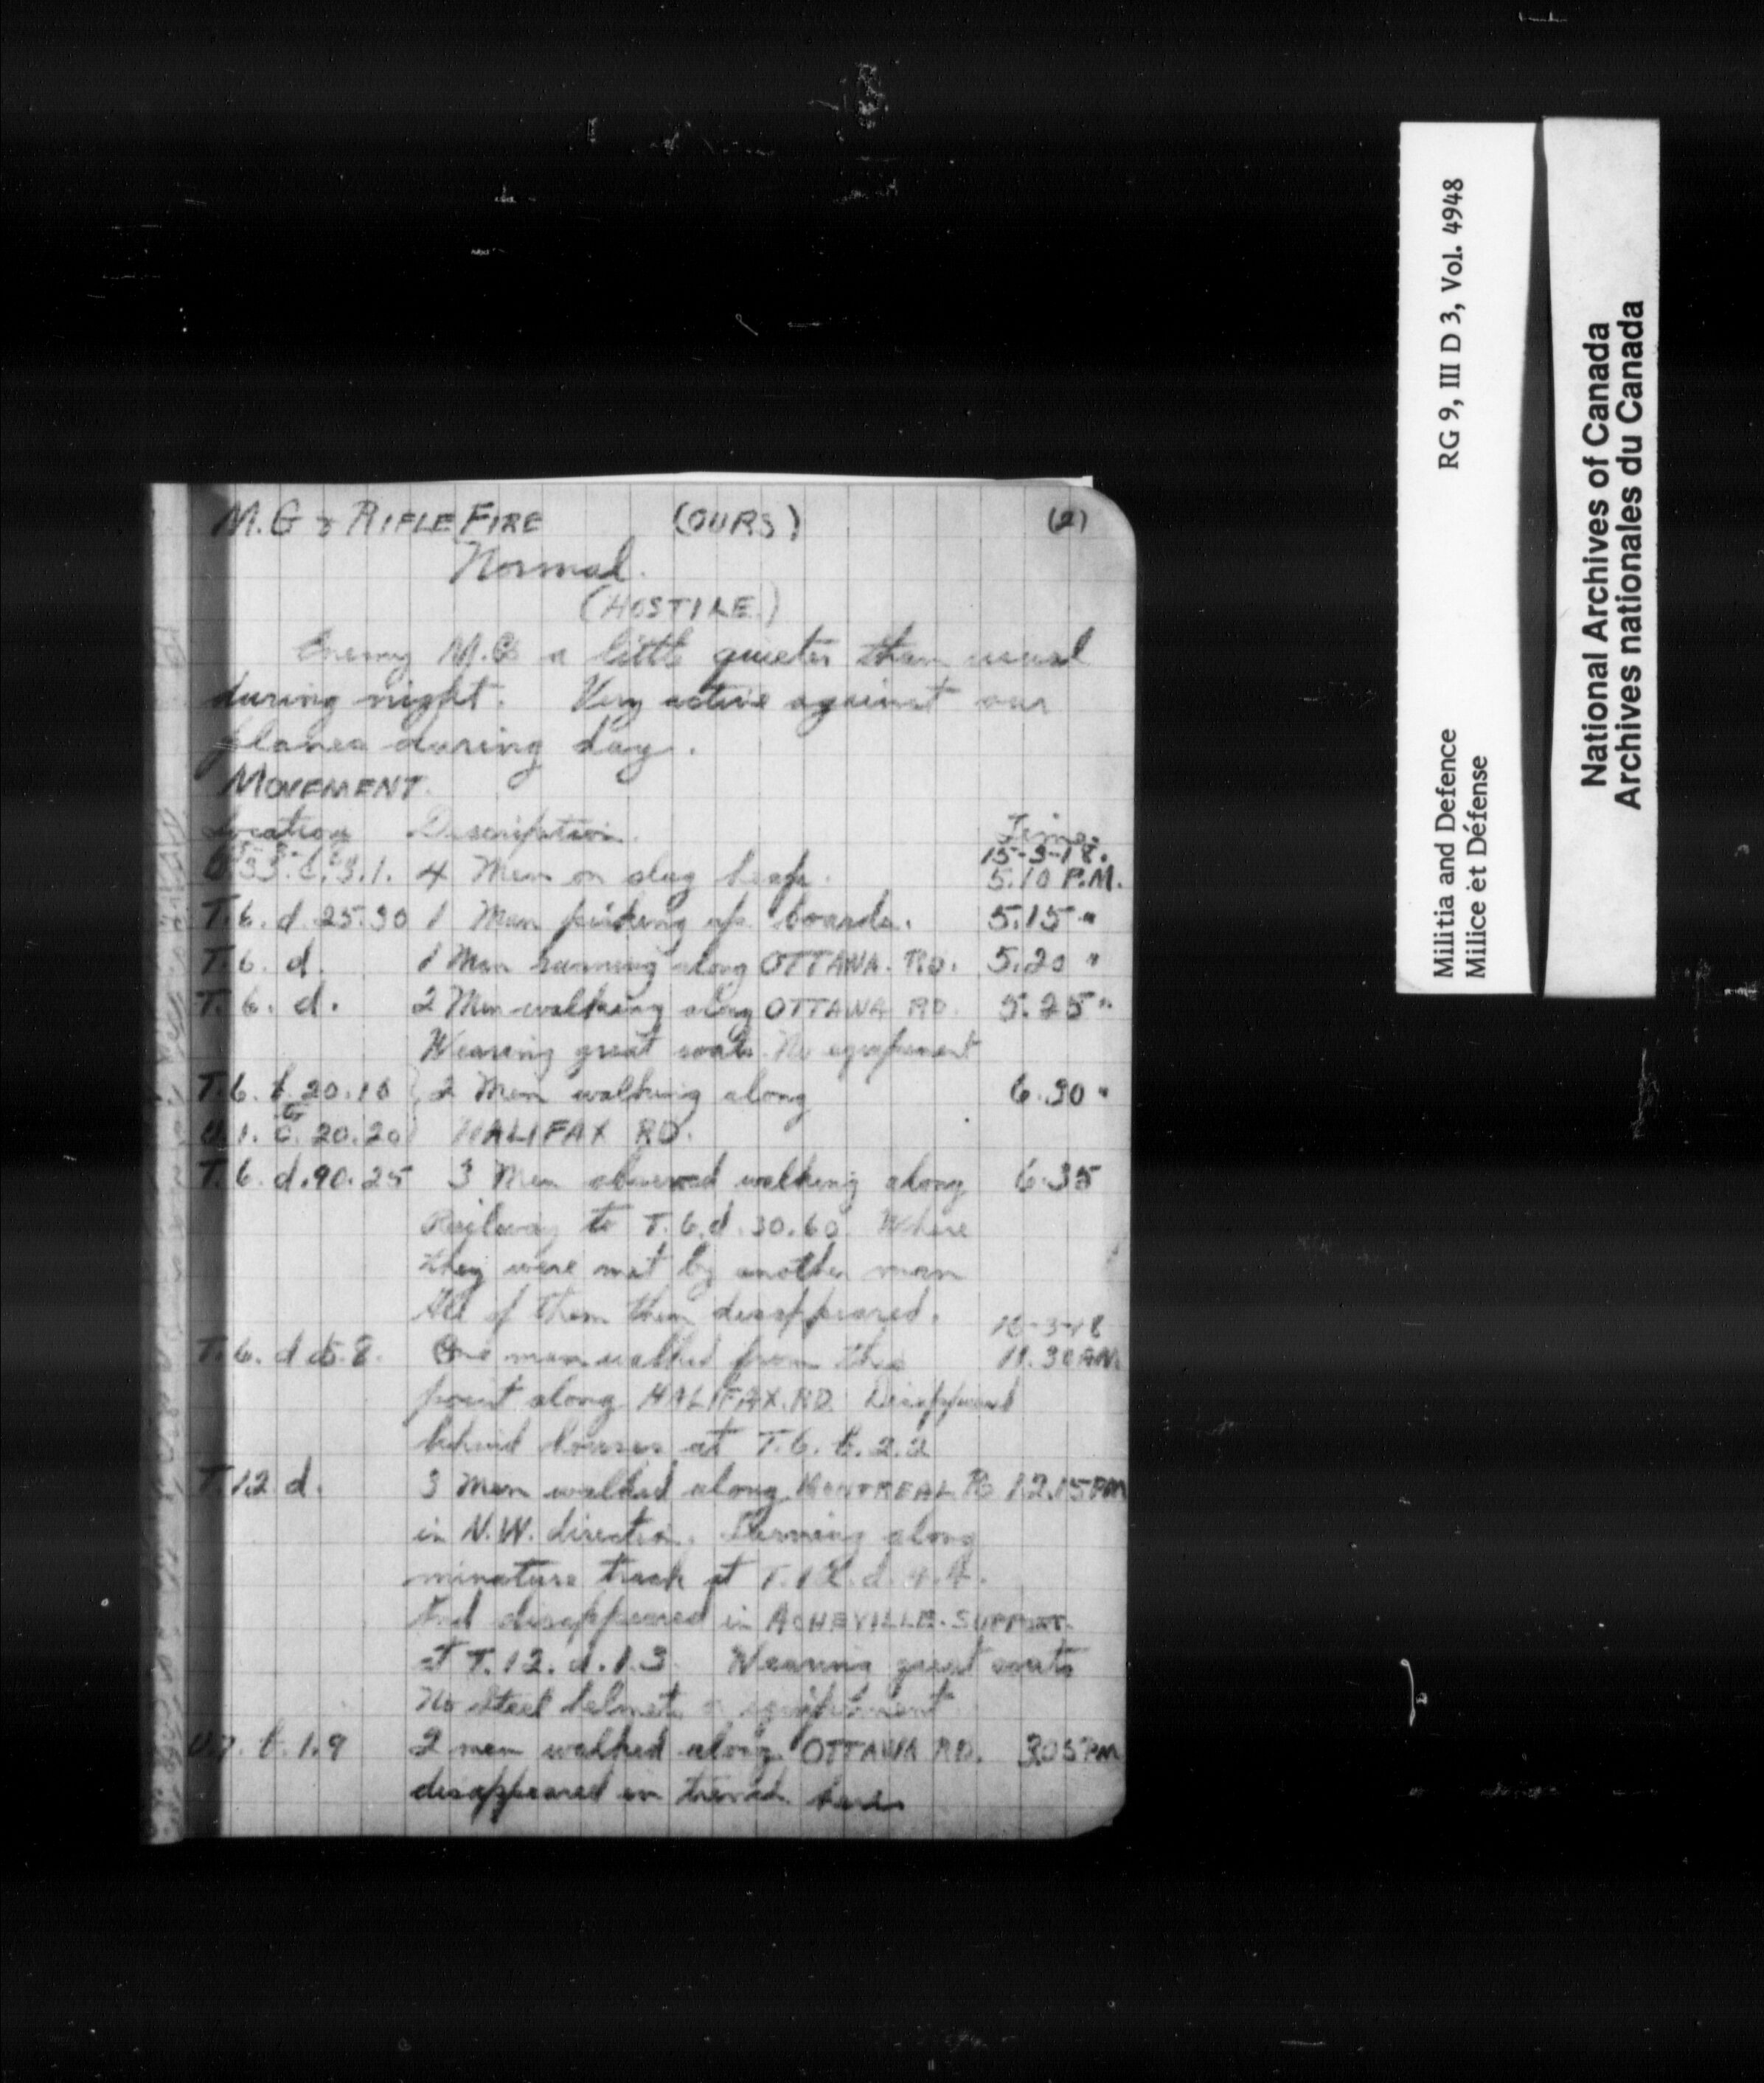 M.G & RIFLE FIRE (OURS) (2)
Normal.
(HOSTILE.)
Enemy M.Gs a little quieter than usual
during night. Very active against our
planes during day.
MOVEMENT.
Location Description. Time.
15-3-18.
33.c.3.1. 4 Men on slag heap. 5.10 P.M.
T.6.d.25.30 1 Man picking up boards. 5.15 "
T.6.d. 1 Man running along OTTAWA. RD. 5.20 "
T.6.d. 2 Men walking along OTTAWA RD. 5.25 "
Wearing great coats. No equipment
T.6.b.20.10 } 2 Men walking along 6.30 "
to
U.1.c.20.20 } HALIFAX RD.
T.6.d.90.25 3 Men observed walking along 6.35
Railway to T.6.d.30.60 Where
they were met by another man
All of them then disappeared.
16-3-18
T.6.d 8. One man walked from this 11.30 AM
point along HALIFAX.RD. Disappeared
behind houses at T.6.b.2.2
T.12 d. 3 Men walked along MONTREAL Rd 12.15 PM
in N.W. direction. Turning along
minature track at T.12.d.4.4.
And disappeared in ACHEVILLE.SUPPORT.
at T.12.d.1.3. Wearing great coats
No steel helmets or equipment.
b.1.9 2 men walked along OTTAWA RD. 3.05 PM
disappeared in trench here
Militia and Defence RG 9, III D 3, Vol. 4948
Milice et Défense
National Archives of Canada
Archives nationales du Canada